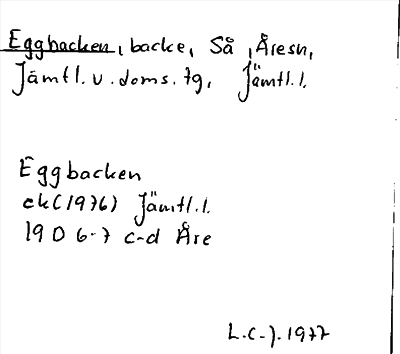 Eggbacken, backe, Så, Åresn,
Jämtl. v. doms. tg, Jämtl. l.
Eggbacken
ek (1976) Jämtl. l.
19 D 6-7 c-d Åre
L.C.J. 1977